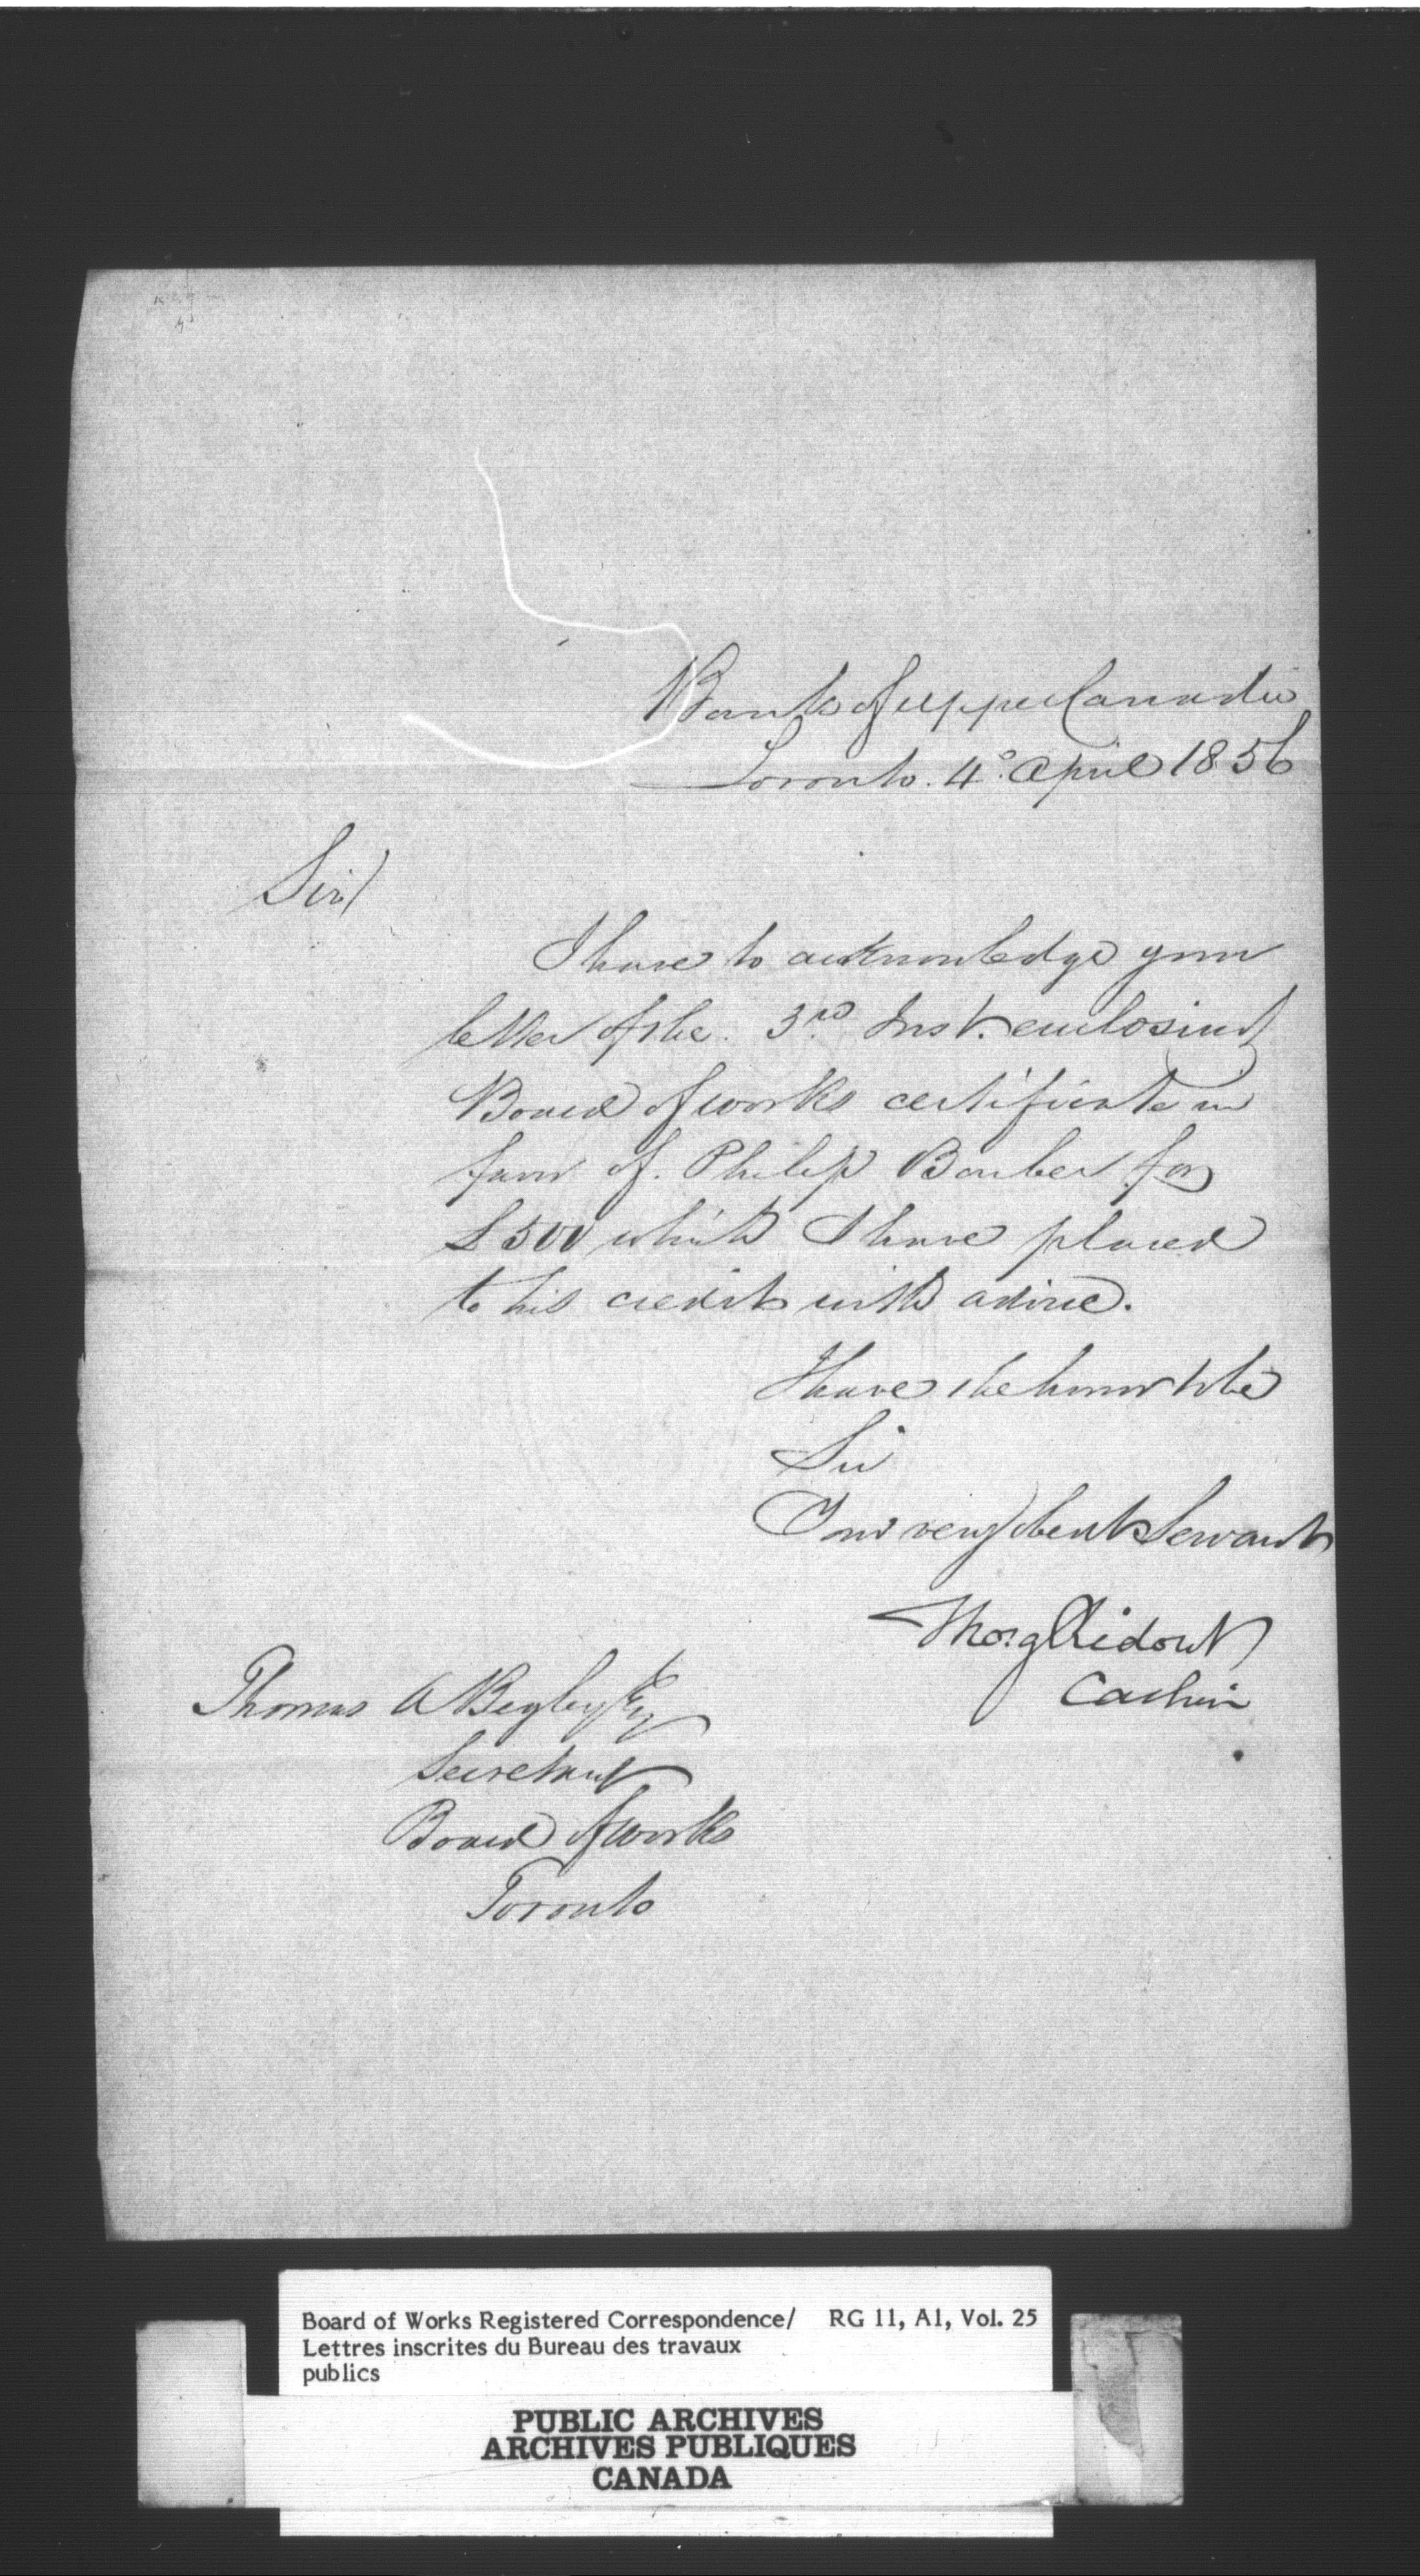 Bank of Upper Canada
Toronto. 4º. April 1856
Sir/
I have to acknowledge your
letter of the. 3rd. Inst. enclosing
Board of works certificate in
favor of. Philip Barber for
£500 which I have placed
to his credit with advice.
I have the honor to be
Sir
Your very obent Servant
Thos. G Ridout
Cashier
Thomas A Begley Esq
Secretary
Board of Works
Toronto
Board of Works Registered Correspondence/ RG 11, A1, Vol. 25
Lettres inscrites du Bureau des travaux
publics
PUBLIC ARCHIVES
ARCHIVES PUBLIQUES
CANADA